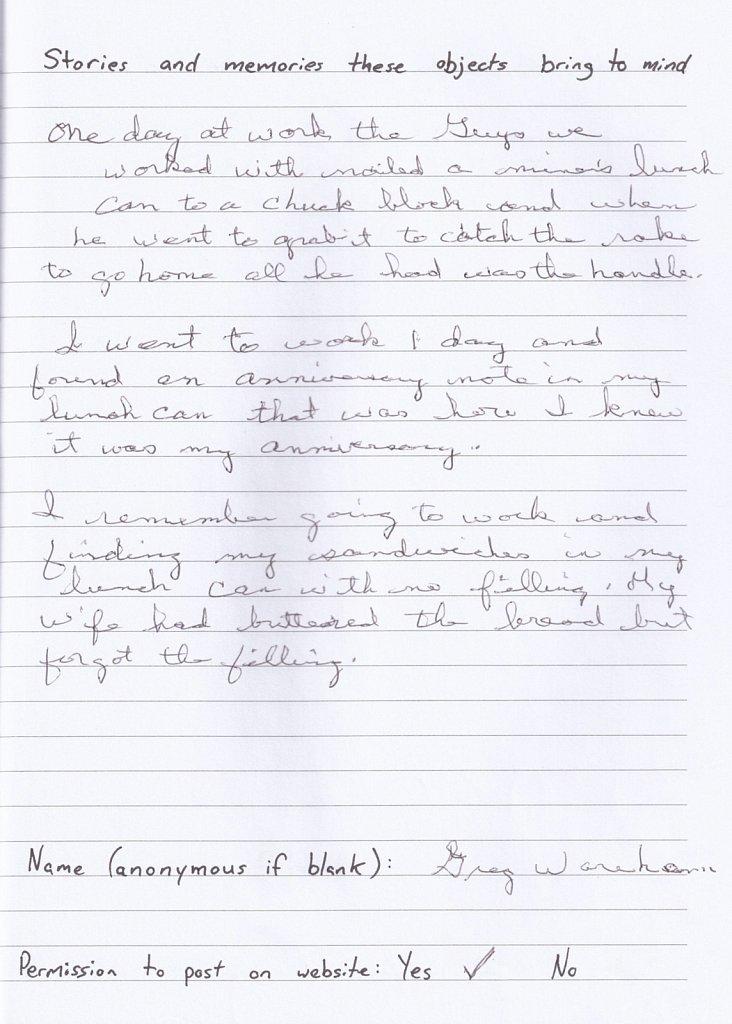 Stories and memories these objects bring to mind
One day at work the Guys we
worked with nailed a miner's lunch
can to a chuck block and when
he went to grab it to catch the rake
to go home all he had was the handle.
I went to work 1 day and
found an anniversary note in my
lunch can that was how I knew
it was my anniversary.
I remember going to work and
finding my sandwiches in my
lunch can with no filling. My
wife had buttered the bread but
forgot the filling.
Name (anonymous if blank): Greg Wareham
Permission to post on website: Yes ✓ No